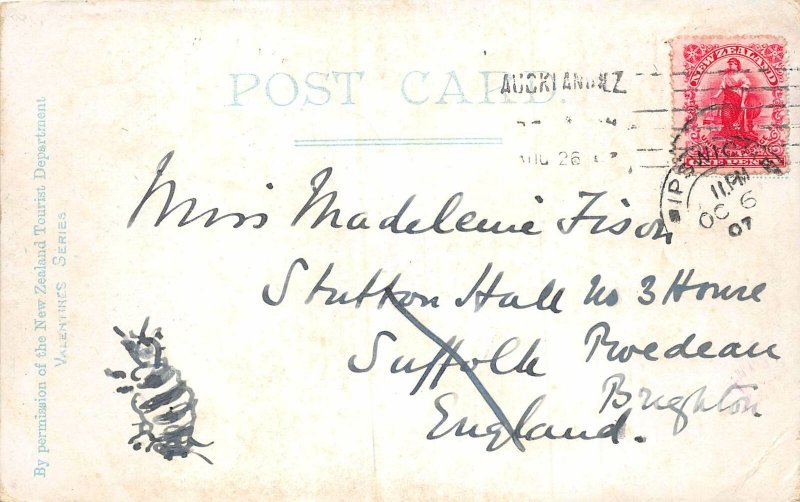 POST CARD.
AUCKLAND N.Z
AUG 26 07
NEW ZEALAND
ONE PENNY
IPSWICH
11 PM
OC 6
07
Miss Madeleine Fison
Stutton Hall No 3 House
Suffolk Roedean
England. Brighton
By permission of the New Zealand Tourist Department
VALENTINES SERIES